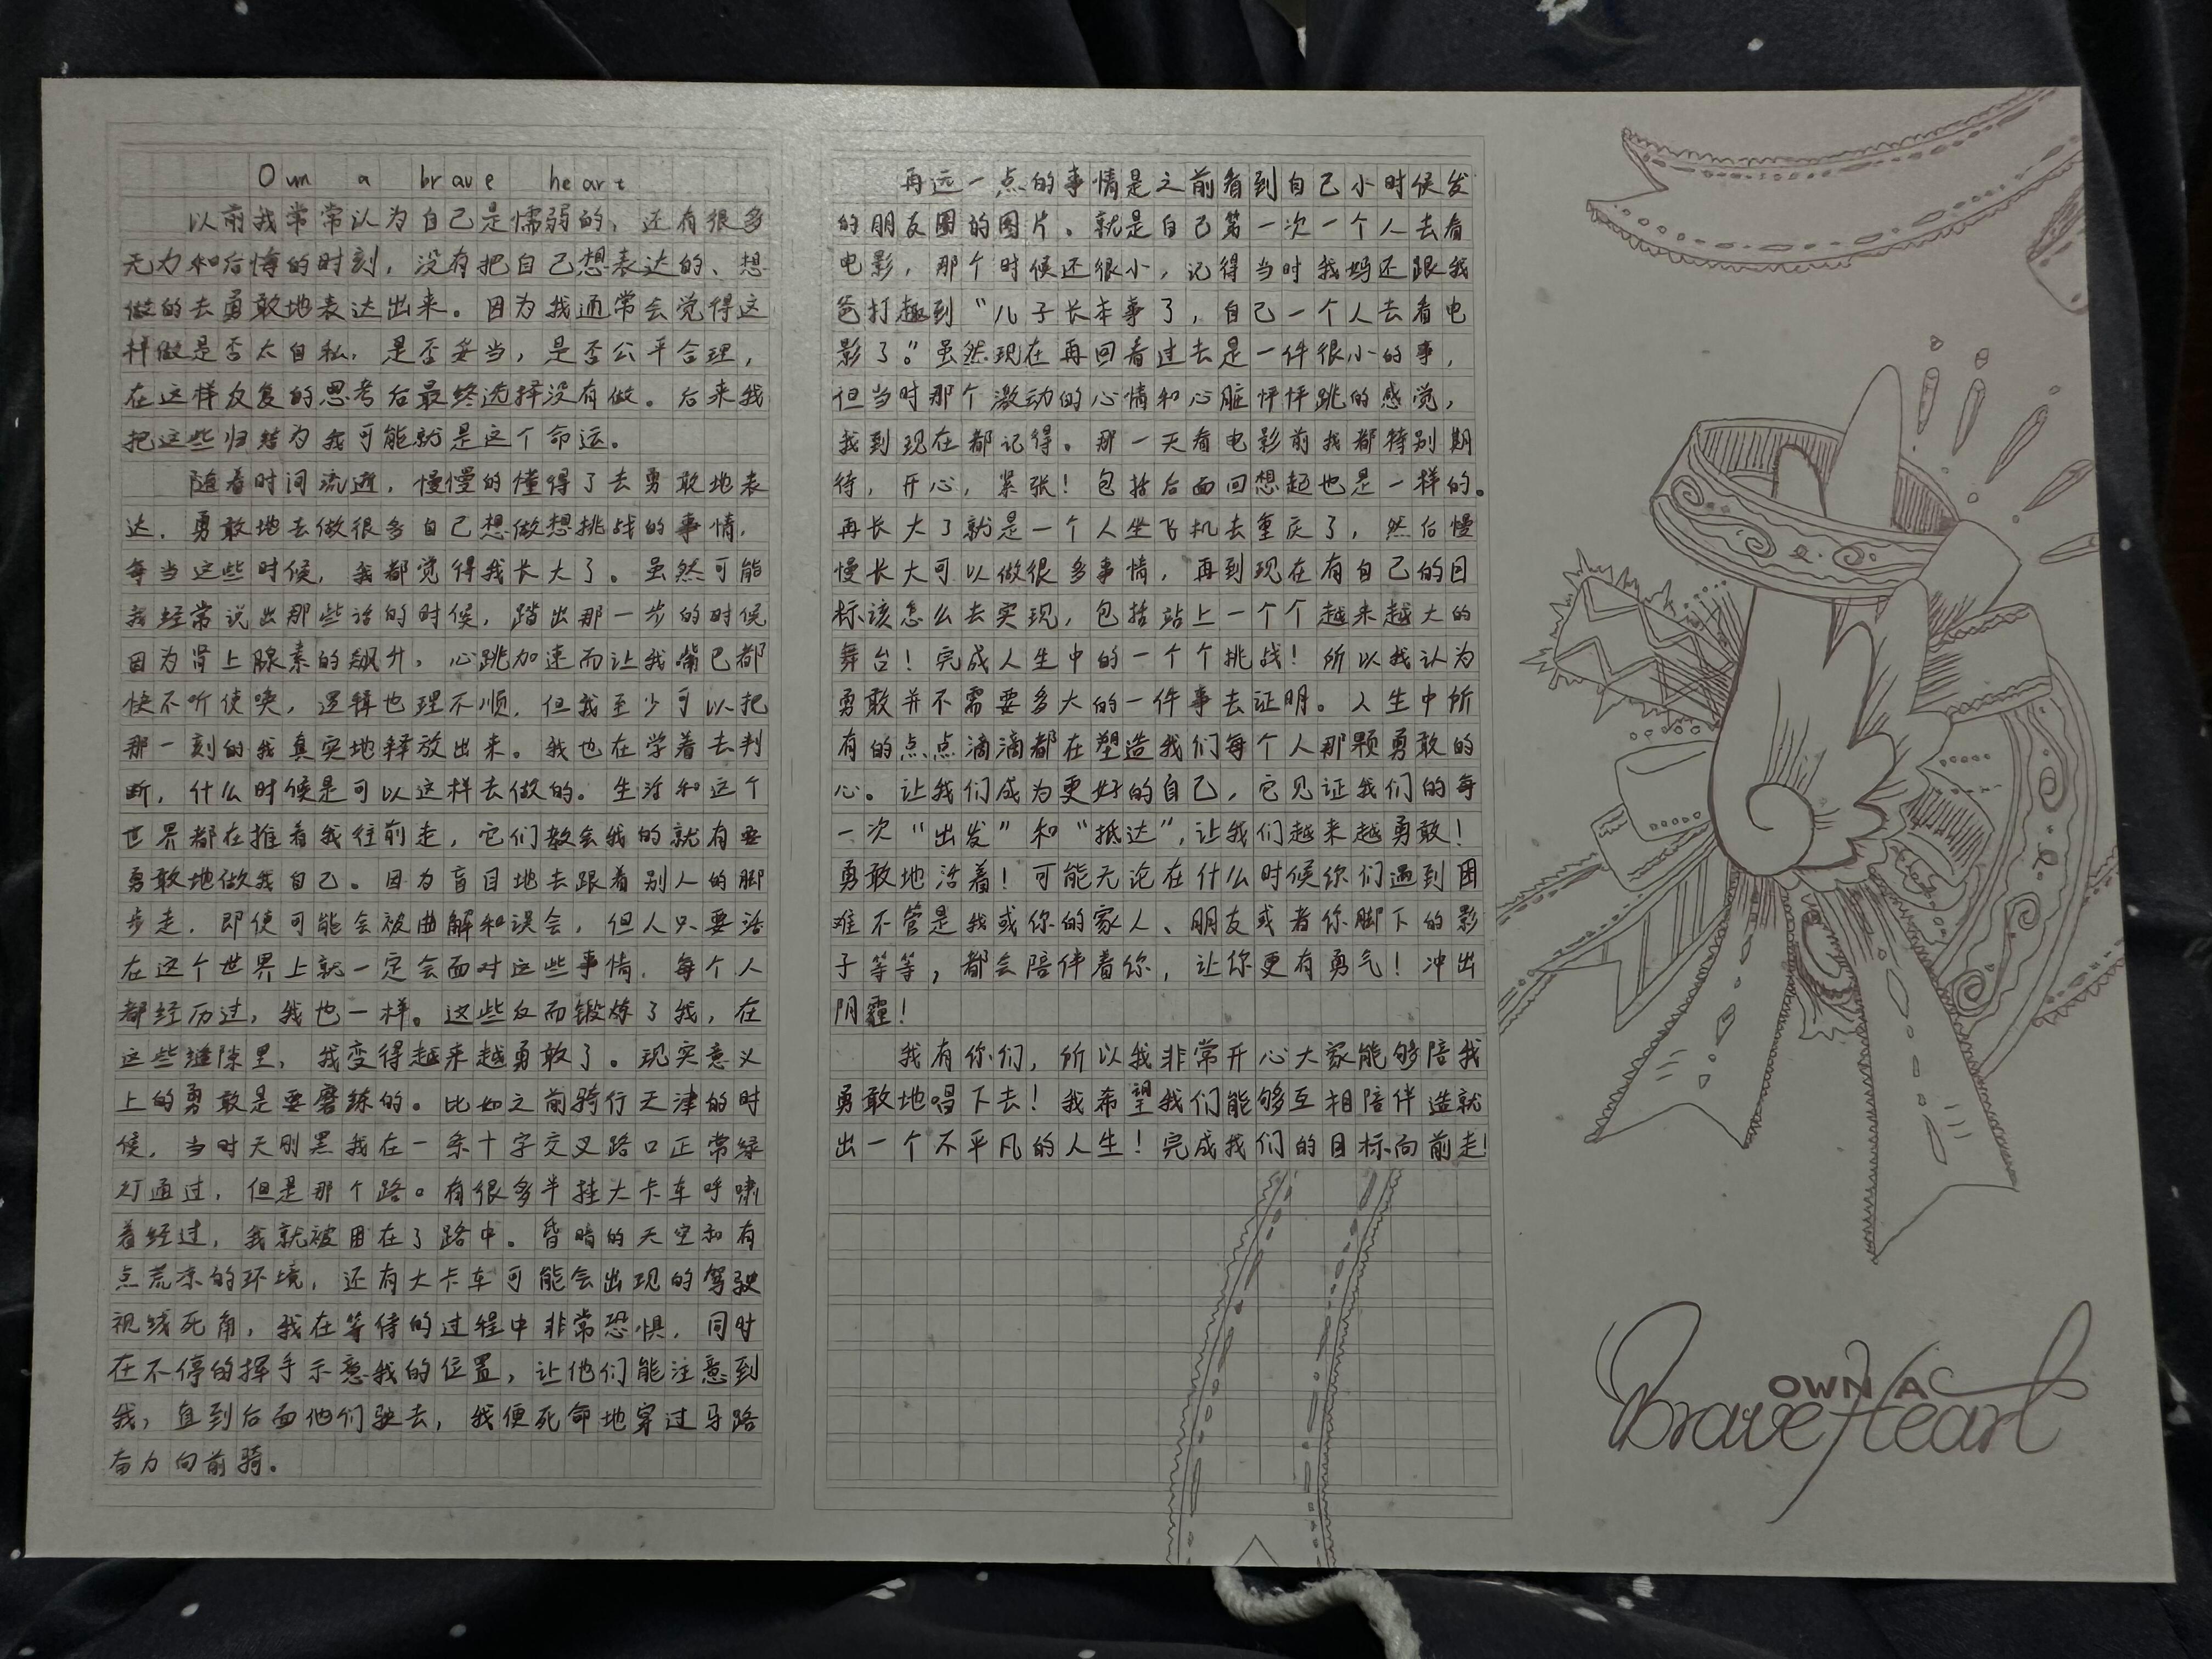 Own a brave heart
以前我常常认为自己是懦弱的，还有很多
无力和后悔的时刻，没有把自己想表达的、想
做的去勇敢地表达出来。因为我通常会觉得这
样做是否太自私，是否妥当，是否公平合理，
在这样反复的思考后最终选择没有做。后来我
把这些归结为我可能就是这个命运。
随着时间流逝，慢慢的懂得了去勇敢地表
达，勇敢地去做很多自己想做想挑战的事情，
每当这些时候，我都觉得我长大了。虽然可能
我经常说出那些话的时候，踏出那一步的时候
因为肾上腺素的飙升，心跳加速而让我嘴巴都
快不听使唤，逻辑也理不顺，但我至少可以把
那一刻的我真实地释放出来。我也在学着去判
断，什么时候是可以这样去做的。生活和这个
世界都在推着我往前走，它们教会我的就有要
勇敢地做我自己。因为盲目地去跟着别人的脚
步走，即使可能会被曲解和误会，但人只要活
在这个世界上就一定会面对这些事情，每个人
都经历过，我也一样。这些反而锻炼了我，在
这些缝隙里，我变得越来越勇敢了。现实意义
上的勇敢是要磨练的。比如之前骑行天津的时
候，当时天刚黑我在一条十字交叉路口正常绿
灯通过，但是那个路。有很多半挂大卡车呼啸
着经过，我就被困在了路中。昏暗的天空和有
点荒凉的环境，还有大卡车可能会出现的驾驶
视线死角，我在等待的过程中非常恐惧，同时
在不停的挥手示意我的位置，让他们能注意到
我，直到后面他们驶去，我便死命地穿过马路
奋力向前骑。
再远一点的事情是之前看到自己小时候发
的朋友圈的图片。就是自己第一次一个人去看
电影，那个时候还很小，记得当时我妈还跟我
爸打趣到“儿子长本事了，自己一个人去看电
影了。”虽然现在再回看过去是一件很小的事，
但当时那个激动的心情和心脏怦怦跳的感觉，
我到现在都记得。那一天看电影前我都特别期
待，开心，紧张！包括后面回想起也是一样的。
再长大了就是一个人坐飞机去重庆了，然后慢
慢长大可以做很多事情，再到现在有自己的目
标该怎么去实现，包括站上一个个越来越大的
舞台！完成人生中的一个个挑战！所以我认为
勇敢并不需要多大的一件事去证明。人生中所
有的点点滴滴都在塑造我们每个人那颗勇敢的
心。让我们成为更好的自己，它见证我们的每
一次“出发”和“抵达”，让我们越来越勇敢！
勇敢地活着！可能无论在什么时候你们遇到困
难不管是我或你的家人、朋友或者你脚下的影
子等等，都会陪伴着你，让你更有勇气！冲出
阴霾！
我有你们，所以我非常开心大家能够陪我
勇敢地唱下去！我希望我们能够互相陪伴造就
出一个不平凡的人生！完成我们的目标向前走！
OWN A
Brave Heart